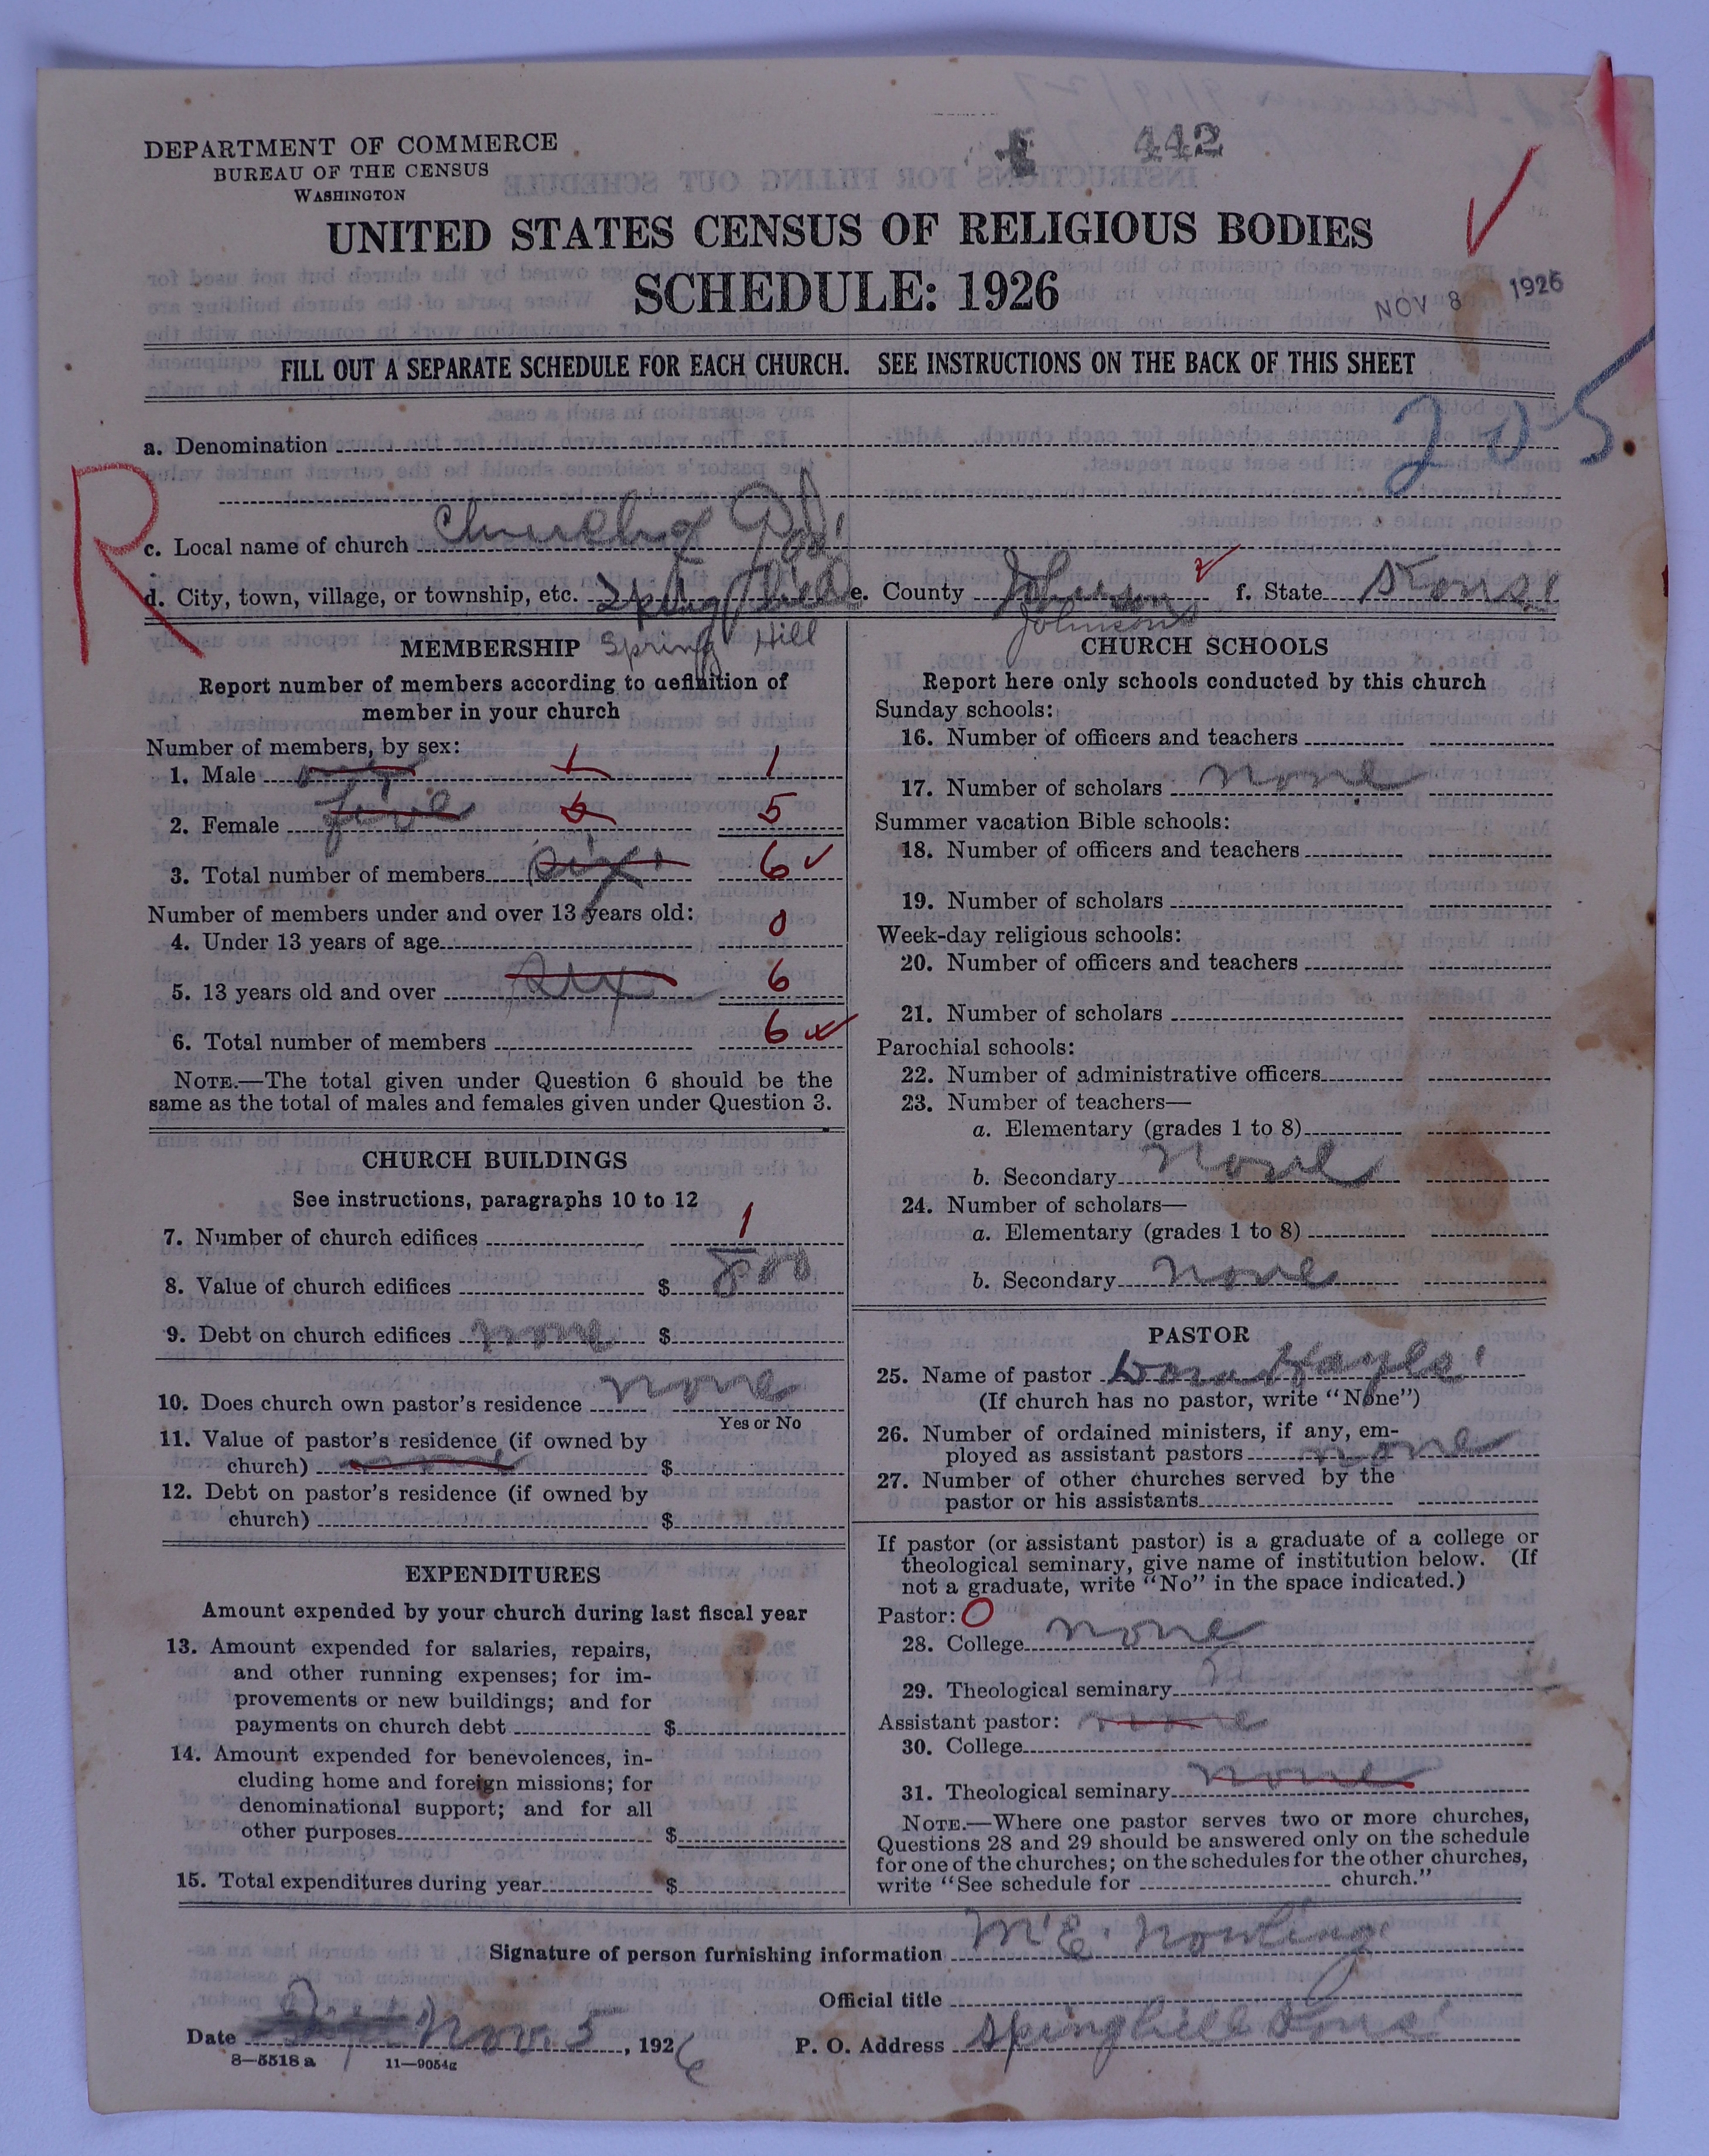 442
DEPARTMENT OF COMMERCE
BUREAU OF THE CENSUS
WASHINGTON
UNITED STATES CENSUS OF RELIGIOUS BODIES
SCHEDULE: 1926
NOV 8 1926
FILL OUT A SEPARATE SCHEDULE FOR EACH CHURCH. SEE INSTRUCTIONS ON THE BACK OF THIS SHEET
205
a. Denomination
R
c. Local name of church Church of God
d. City, town, village, or township, etc. Spring Hill e. County Johnson f. State Kans
Spring Hill Johnson
MEMBERSHIP
Report number of members according to definition of
member in your church
Number of members, by sex:
1. Male one 1 1
2. Female five 5 5
3. Total number of members six 6
Number of members under and over 13 years old:
4. Under 13 years of age 0
5. 13 years old and over six 6
6. Total number of members 6
NOTE.—The total given under Question 6 should be the
same as the total of males and females given under Question 3.
CHURCH BUILDINGS
See instructions, paragraphs 10 to 12
7. Number of church edifices 1
8. Value of church edifices $ 800
9. Debt on church edifices none $
10. Does church own pastor's residence none
Yes or No
11. Value of pastor's residence (if owned by
church) none $
12. Debt on pastor's residence (if owned by
church) $
EXPENDITURES
Amount expended by your church during last fiscal year
13. Amount expended for salaries, repairs,
and other running expenses; for im-
provements or new buildings; and for
payments on church debt $
14. Amount expended for benevolences, in-
cluding home and foreign missions; for
denominational support; and for all
other purposes $
15. Total expenditures during year $
CHURCH SCHOOLS
Report here only schools conducted by this church
Sunday schools:
16. Number of officers and teachers
17. Number of scholars none
Summer vacation Bible schools:
18. Number of officers and teachers
19. Number of scholars
Week-day religious schools:
20. Number of officers and teachers
21. Number of scholars
Parochial schools:
22. Number of administrative officers
23. Number of teachers—
a. Elementary (grades 1 to 8)
b. Secondary none
24. Number of scholars—
a. Elementary (grades 1 to 8)
b. Secondary none
PASTOR
25. Name of pastor Dora Hayes
(If church has no pastor, write "None")
26. Number of ordained ministers, if any, em-
ployed as assistant pastors none
27. Number of other churches served by the
pastor or his assistants
If pastor (or assistant pastor) is a graduate of a college or
theological seminary, give name of institution below. (If
not a graduate, write "No" in the space indicated.)
Pastor: O
28. College none
29. Theological seminary
Assistant pastor: none
30. College
31. Theological seminary none
NOTE.—Where one pastor serves two or more churches,
Questions 28 and 29 should be answered only on the schedule
for one of the churches; on the schedules for the other churches,
write "See schedule for church."
Signature of person furnishing information M E Nowling
Official title
Date Nov. 5, 1926 P. O. Address Springhill Kans
8—5518 a 11—9054g